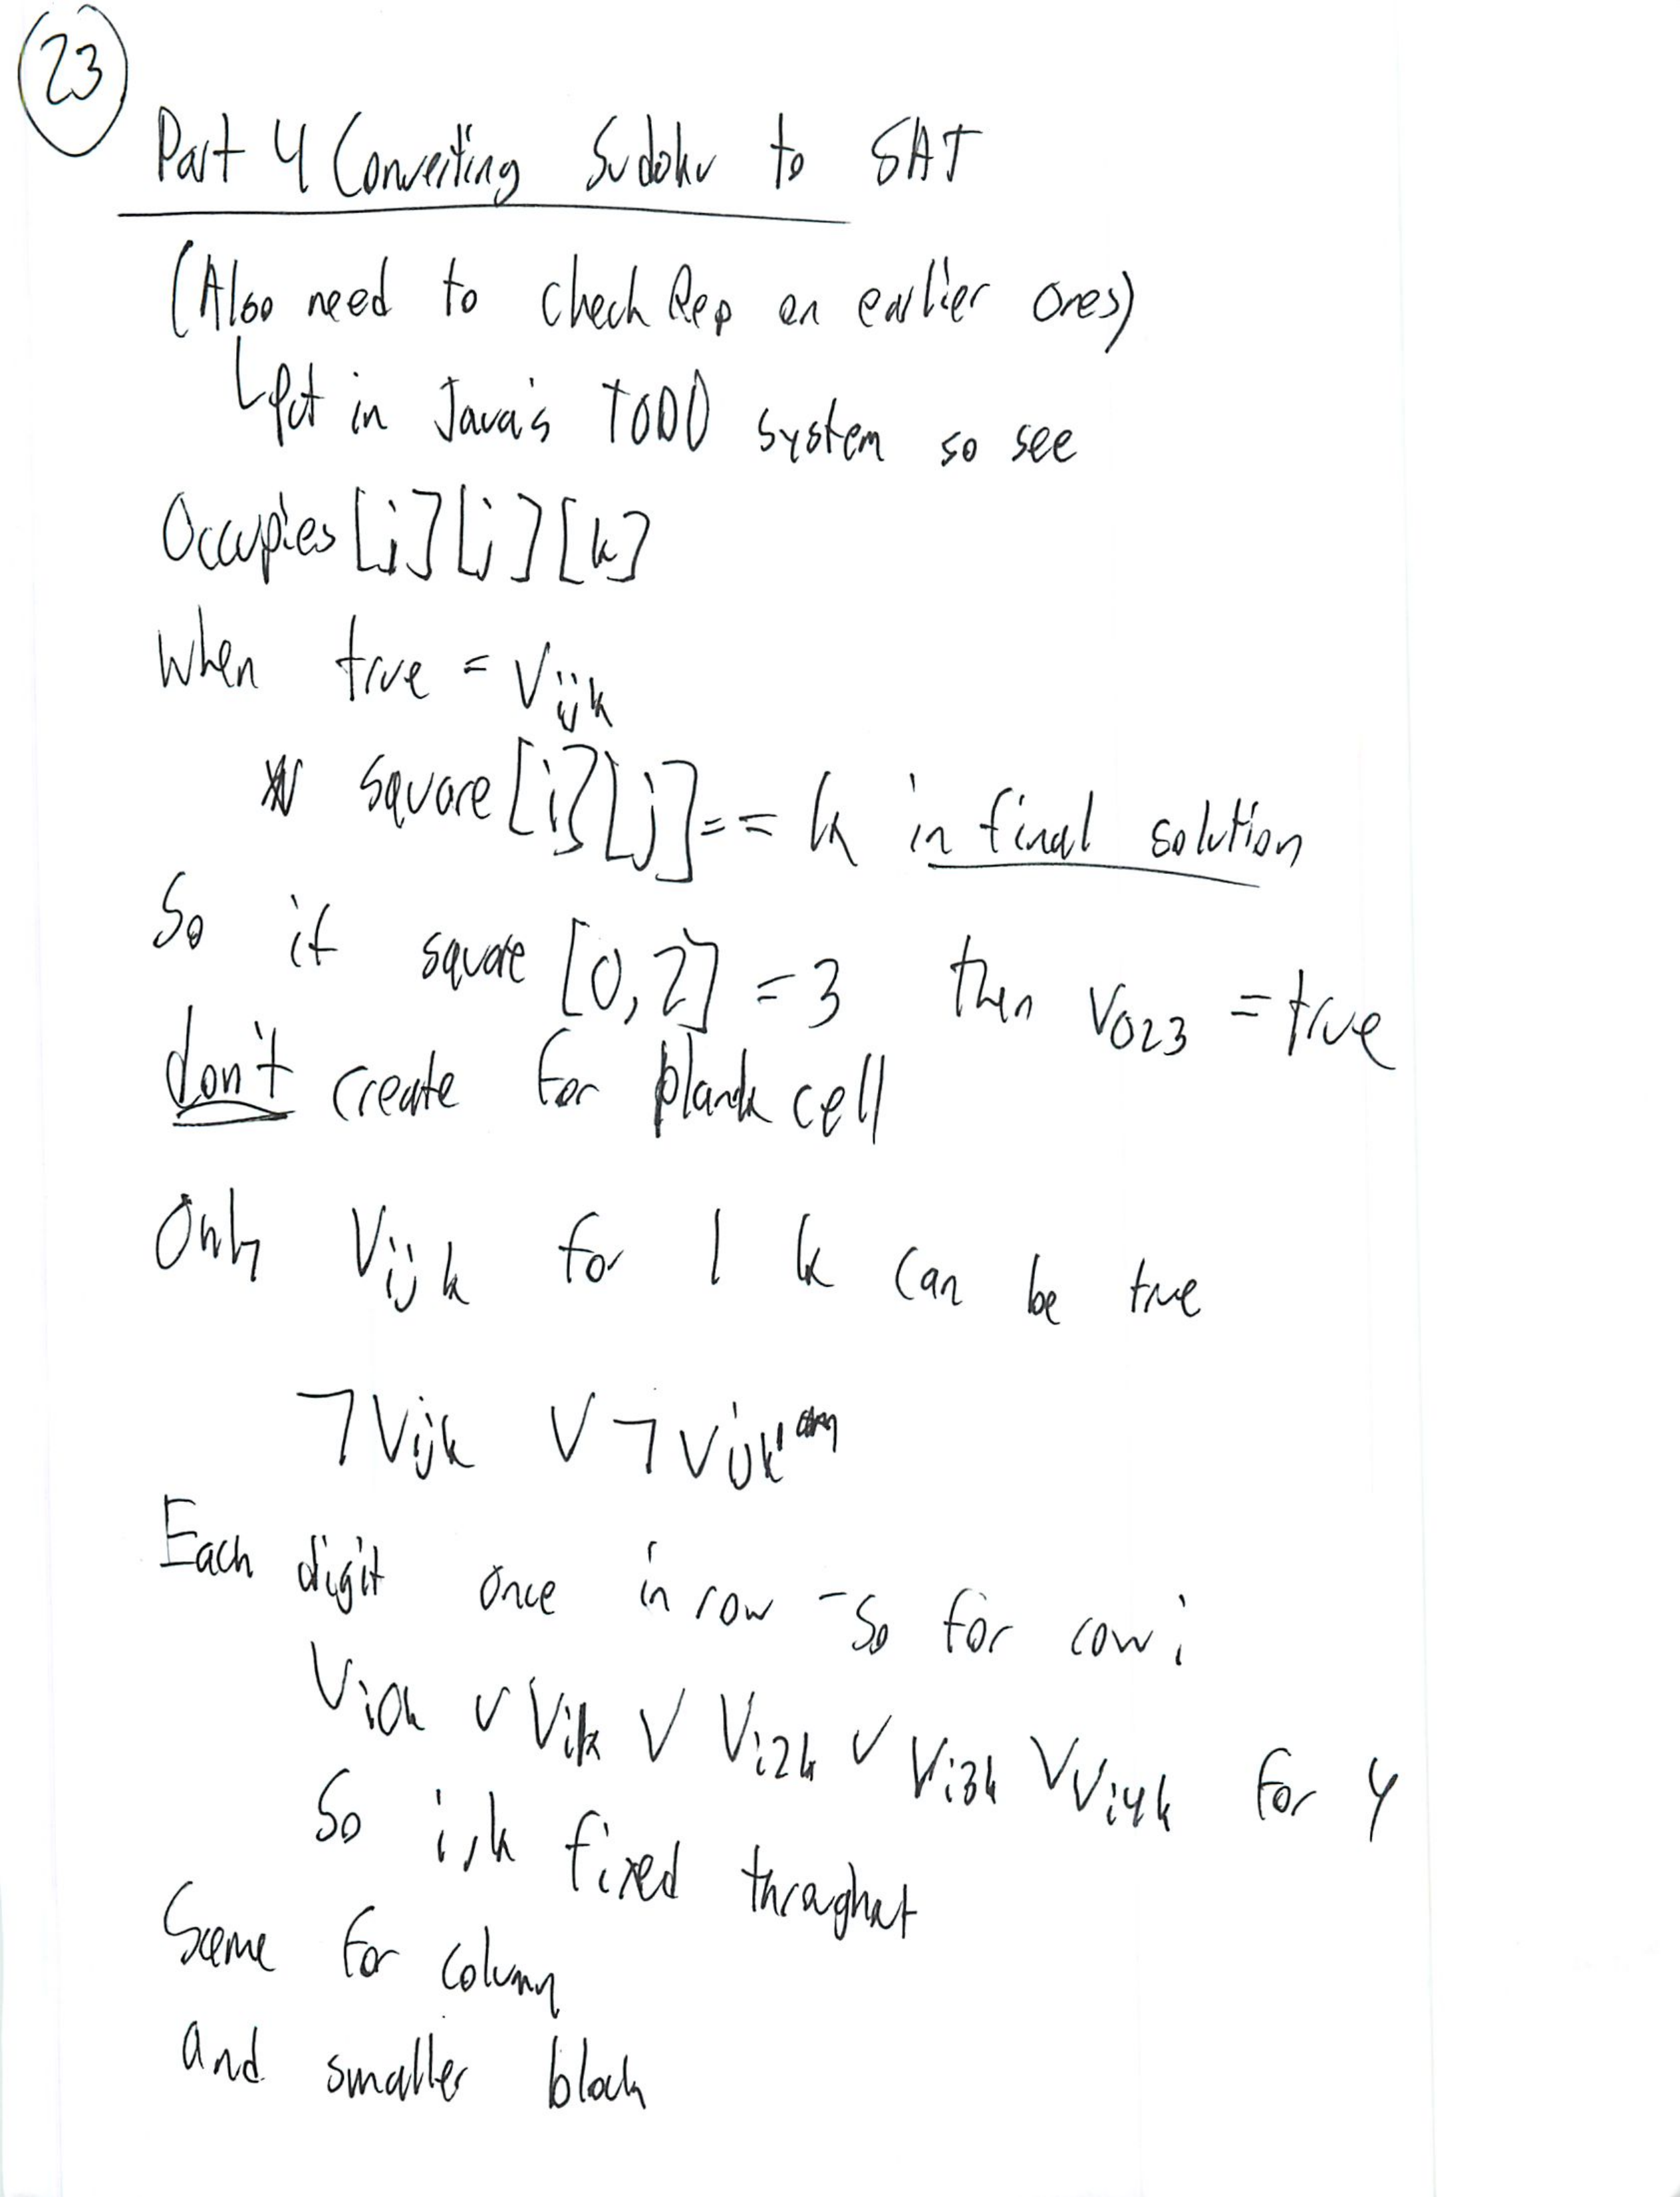 23
Part 4 Converting Sudoku to SAT
(Also need to check Rep on earlier ones)
Put in Java's TODO system so see
Occupies [i][j][k]
When true = Vijk
square[i][j] == k in final solution
So if square [0,2] = 3 then V023 = true
don't create for blank cell
Only Vijk for 1 k can be true
¬Vijk ∨ ¬Vijk'
Each digit once in row - So for row i
Vi0k ∨ Vi1k ∨ Vi2k ∨ Vi3k ∨ Vi4k for 4
So i,k fixed throughout
Same for column
and smaller block